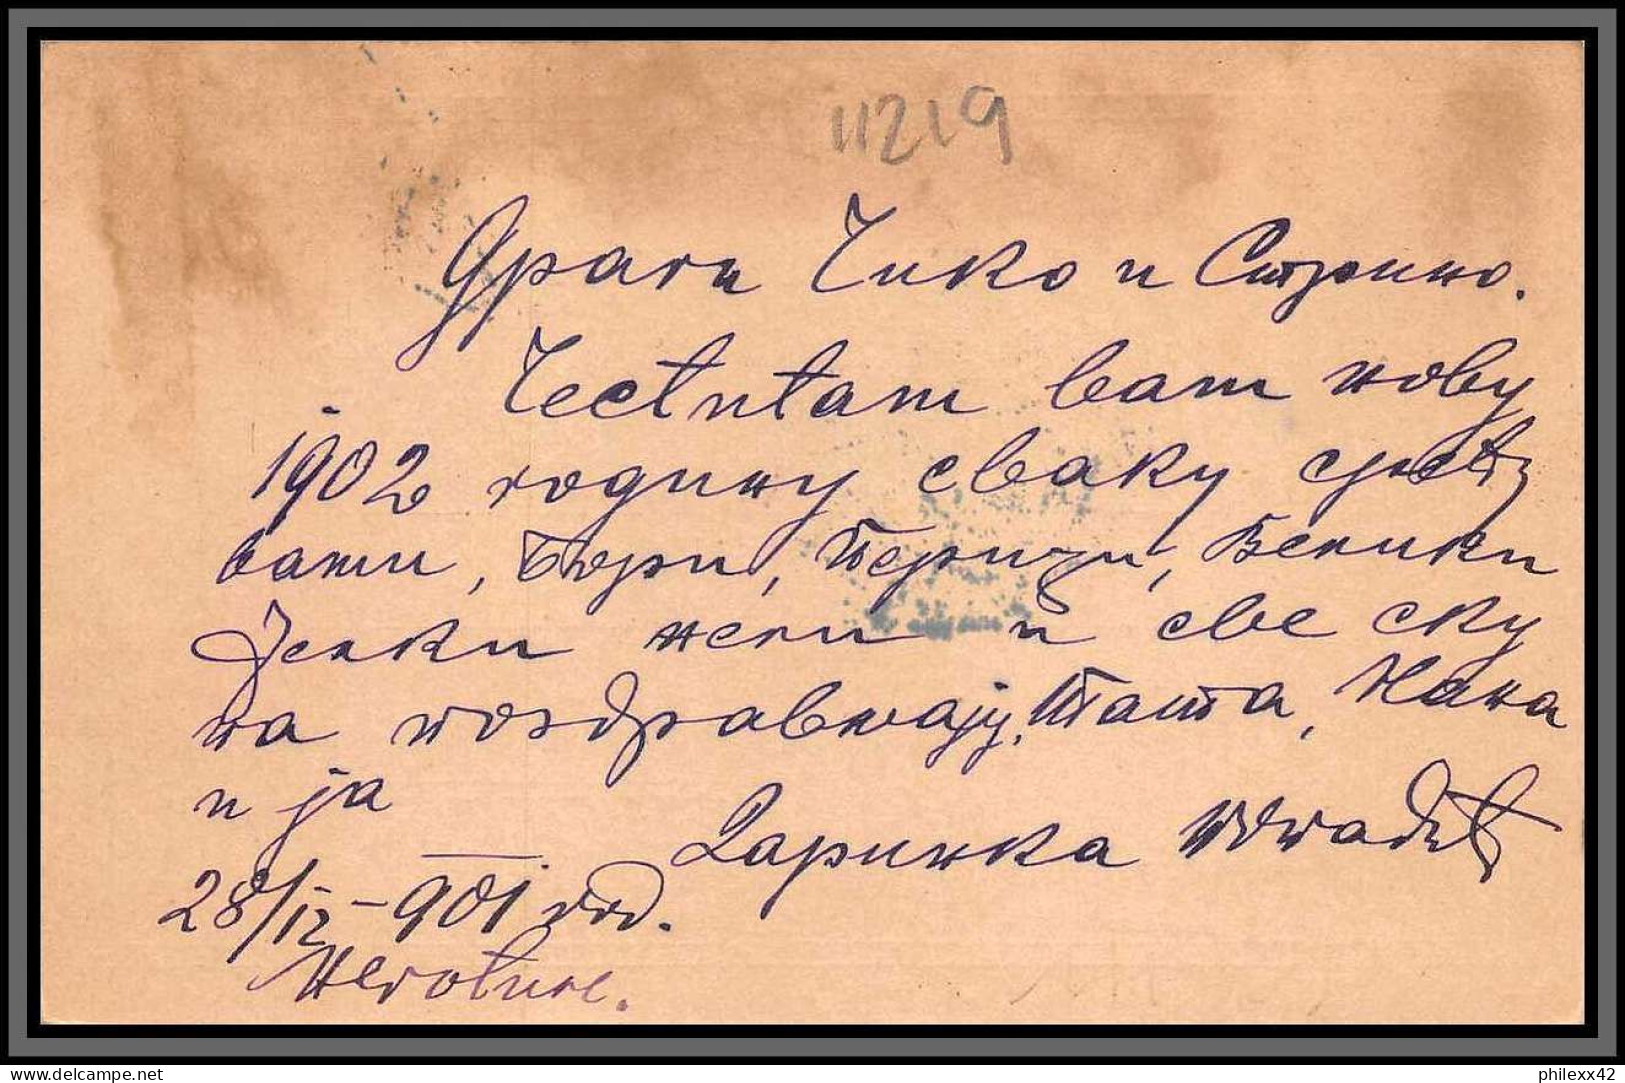 11219
Драги Чико и Стрино.
Честитам вам нову
1902 годину сваку срећу
вами, Бори, Перизи, Велики
Јелки жели и све ску
па поздрављају, Тата, Нана
и ја
Даринка
28/12-901 год.
Неготине.
delcampe.net
philexx42